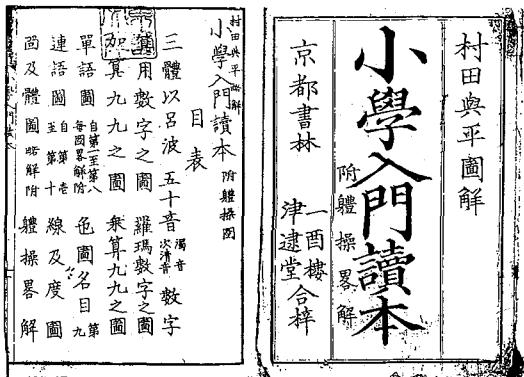 村田與平圖解
小學入門讀本
附軆操畧解
京都書林
一酉樓
津逮堂
合梓
村田與平略解
小學入門讀本 附軆操図
目表
三體以呂波 五十音 濁音 次清音 數字
算用數字之圖 羅瑪數字之圖
加算九九之圖 乗算九九之圖
單語圖 自第一至第八 毎図畧解附 色圖名目 第九
連語圖 自第壱 至第十 線及度圖
面及體圖 略解附 軆操畧解